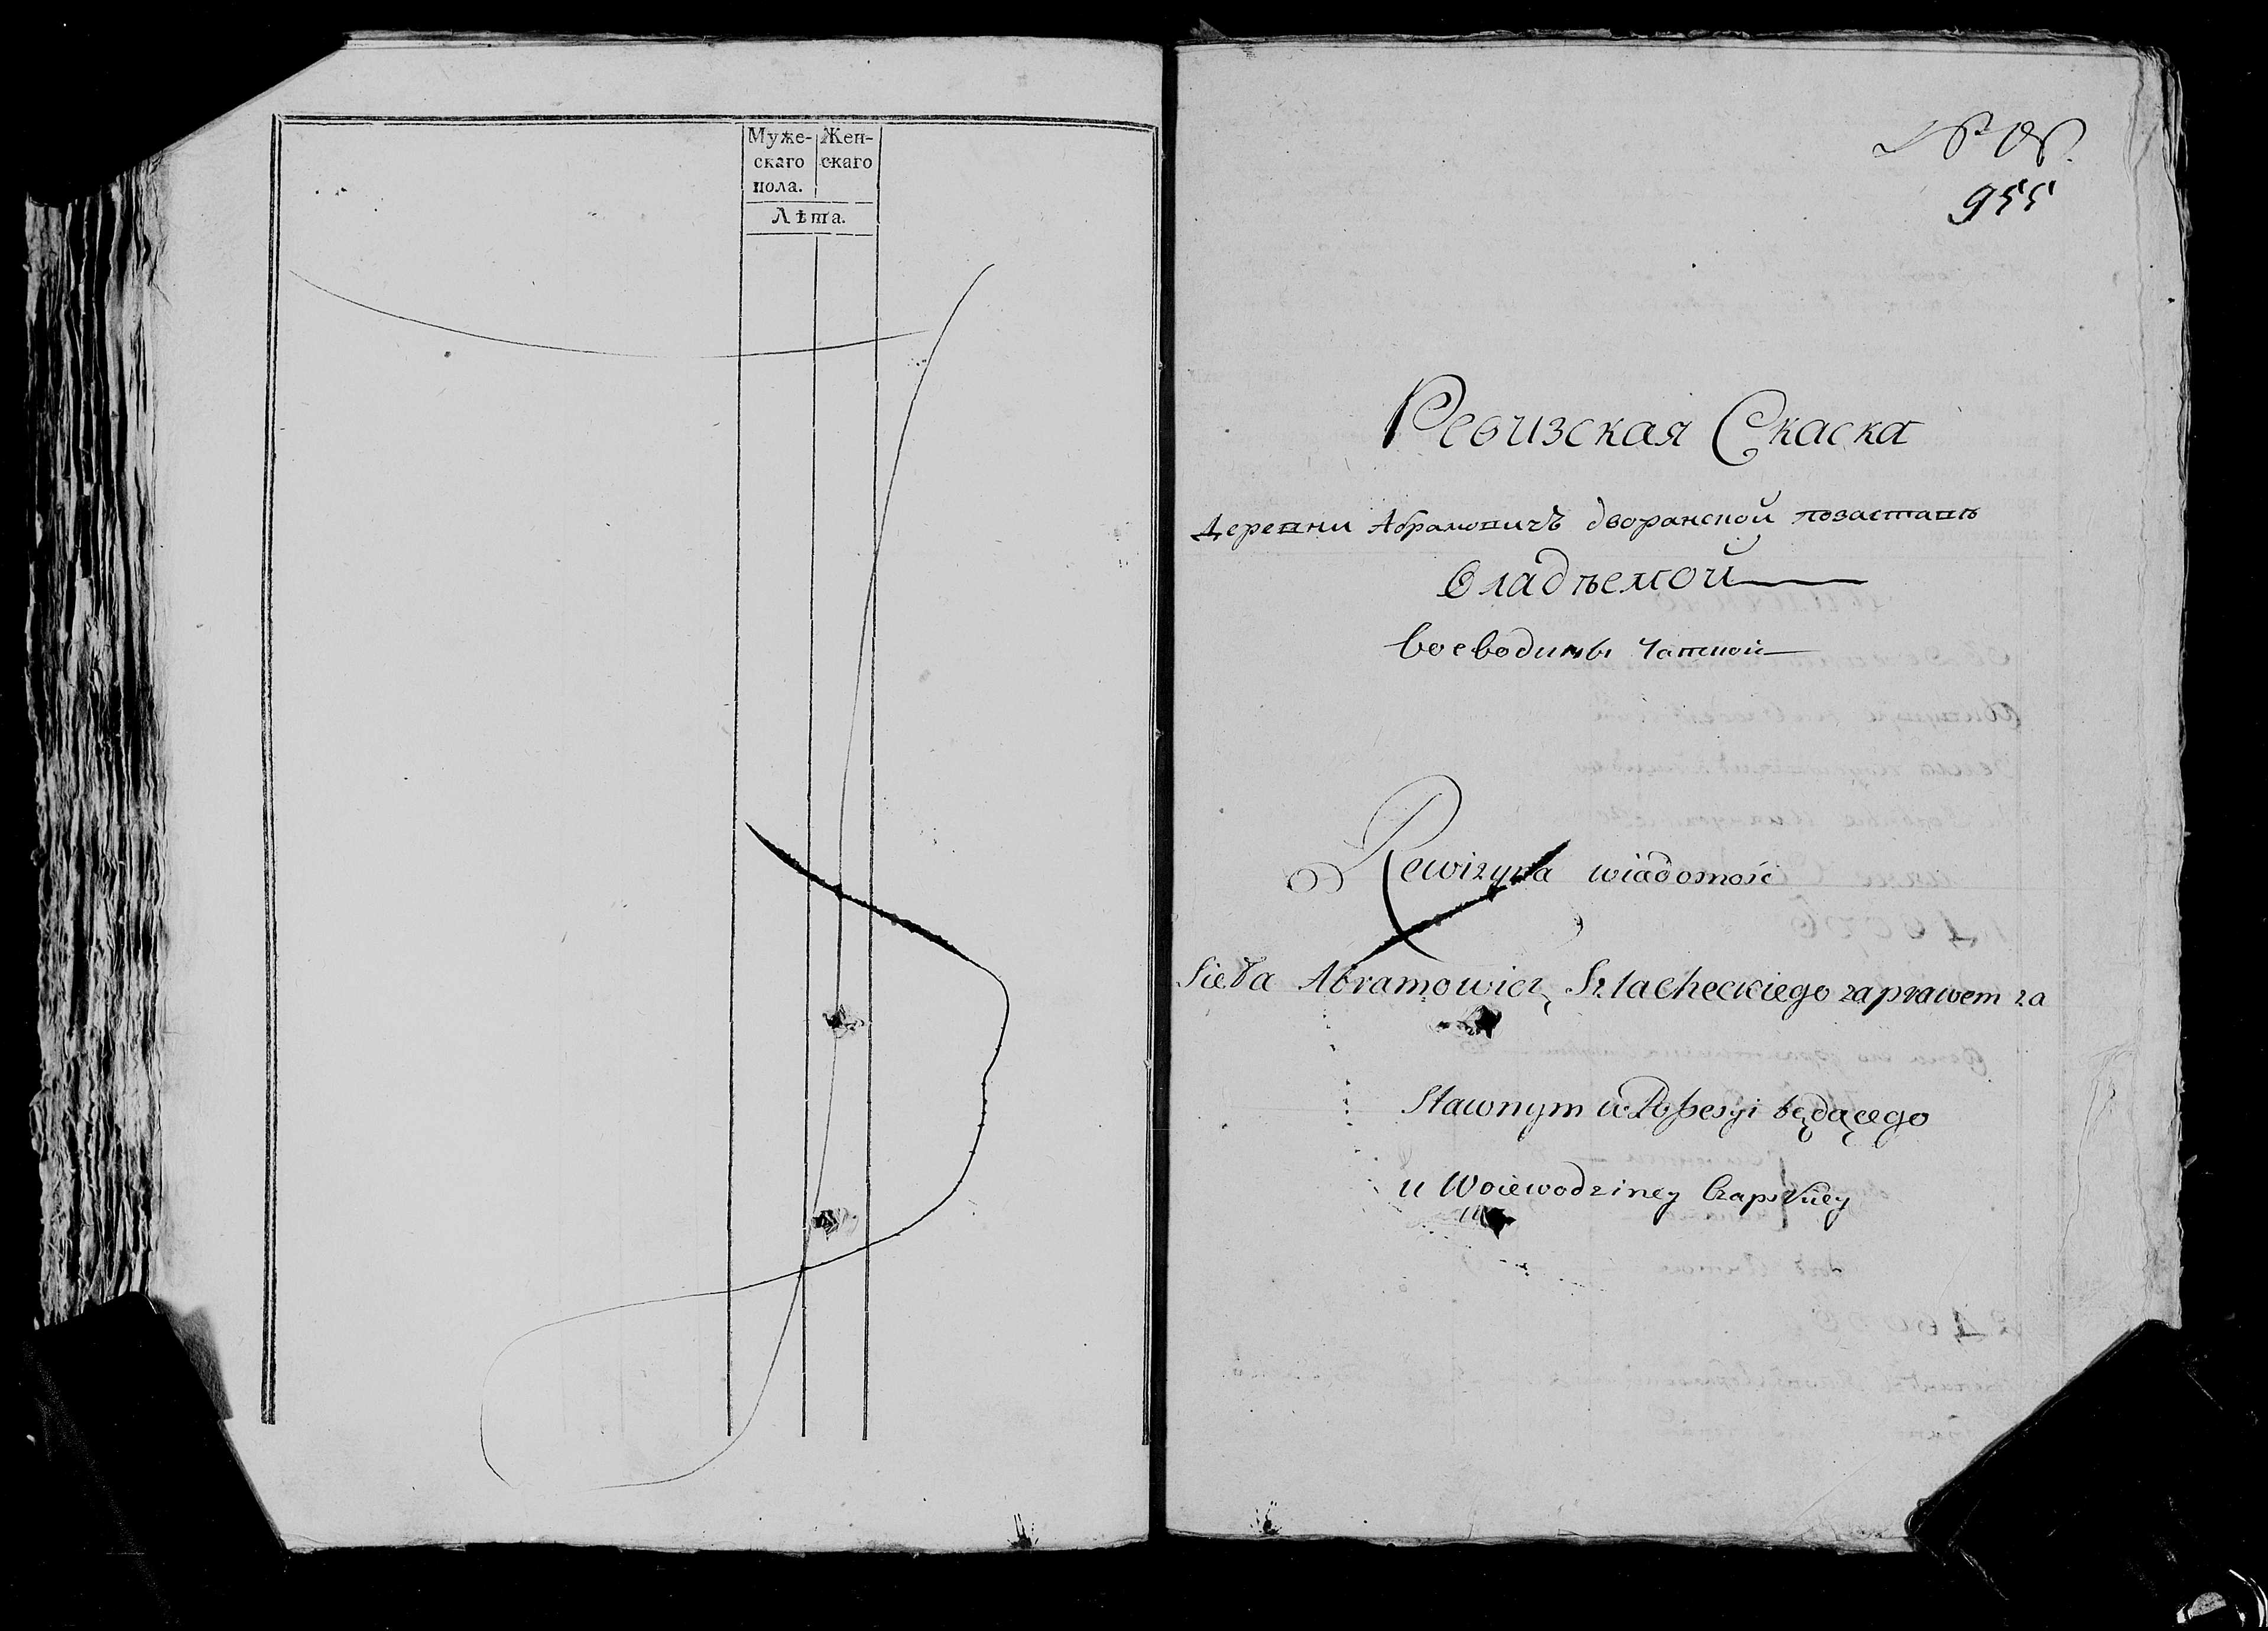 Муже- Жен-
скаго скаго
пола.
Лѣта.
955
Ревизская Скаска
Деревни Абрамовичъ дворанской позаставъ
владѣемой
воеводины Чапской
Rewizyna wiadomość
Sieła Abramowicz Szlacheckiego za prawem za
stawnym w Possesyi będącego
u Woiewodziney Czapskiey